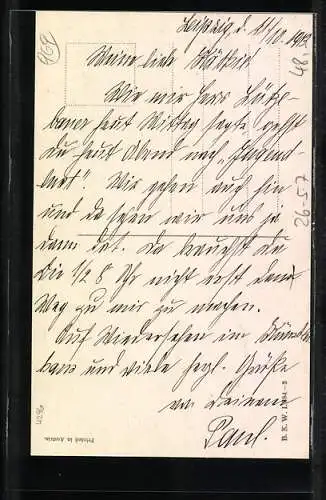 Leipzig, d. 11/10. 1912
Meine liebe Käthe!
Wie mir Herr
bauer heut Mittag sagte, gehst
du heut Abend nach „Jugend-
. Wir gehen auch hin
und da sehen wir uns ja
dann dort. Da brauchst du
die 1/2 8 Uhr nicht erst den
Weg zu mir zu machen.
Auf Wiedersehen im
und viele herzl. Grüße
von deinem
Paul.
969
48.-
26-57
4296
Printed in Austria.
B. K. W. I.